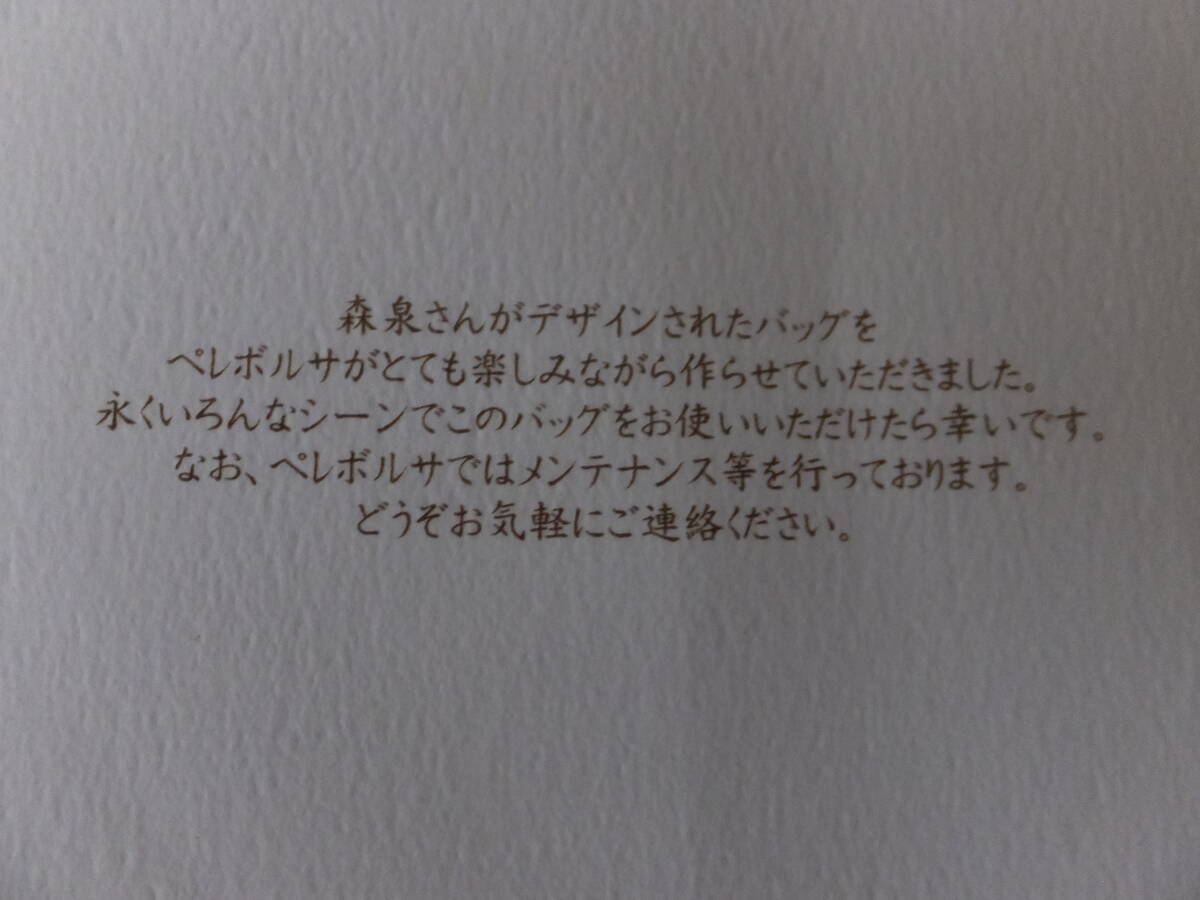 森泉さんがデザインされたバッグを
ペレボルサがとても楽しみながら作らせていただきました。
永くいろんなシーンでこのバッグをお使いいただけたら幸いです。
なお、ペレボルサではメンテナンス等を行っております。
どうぞお気軽にご連絡ください。